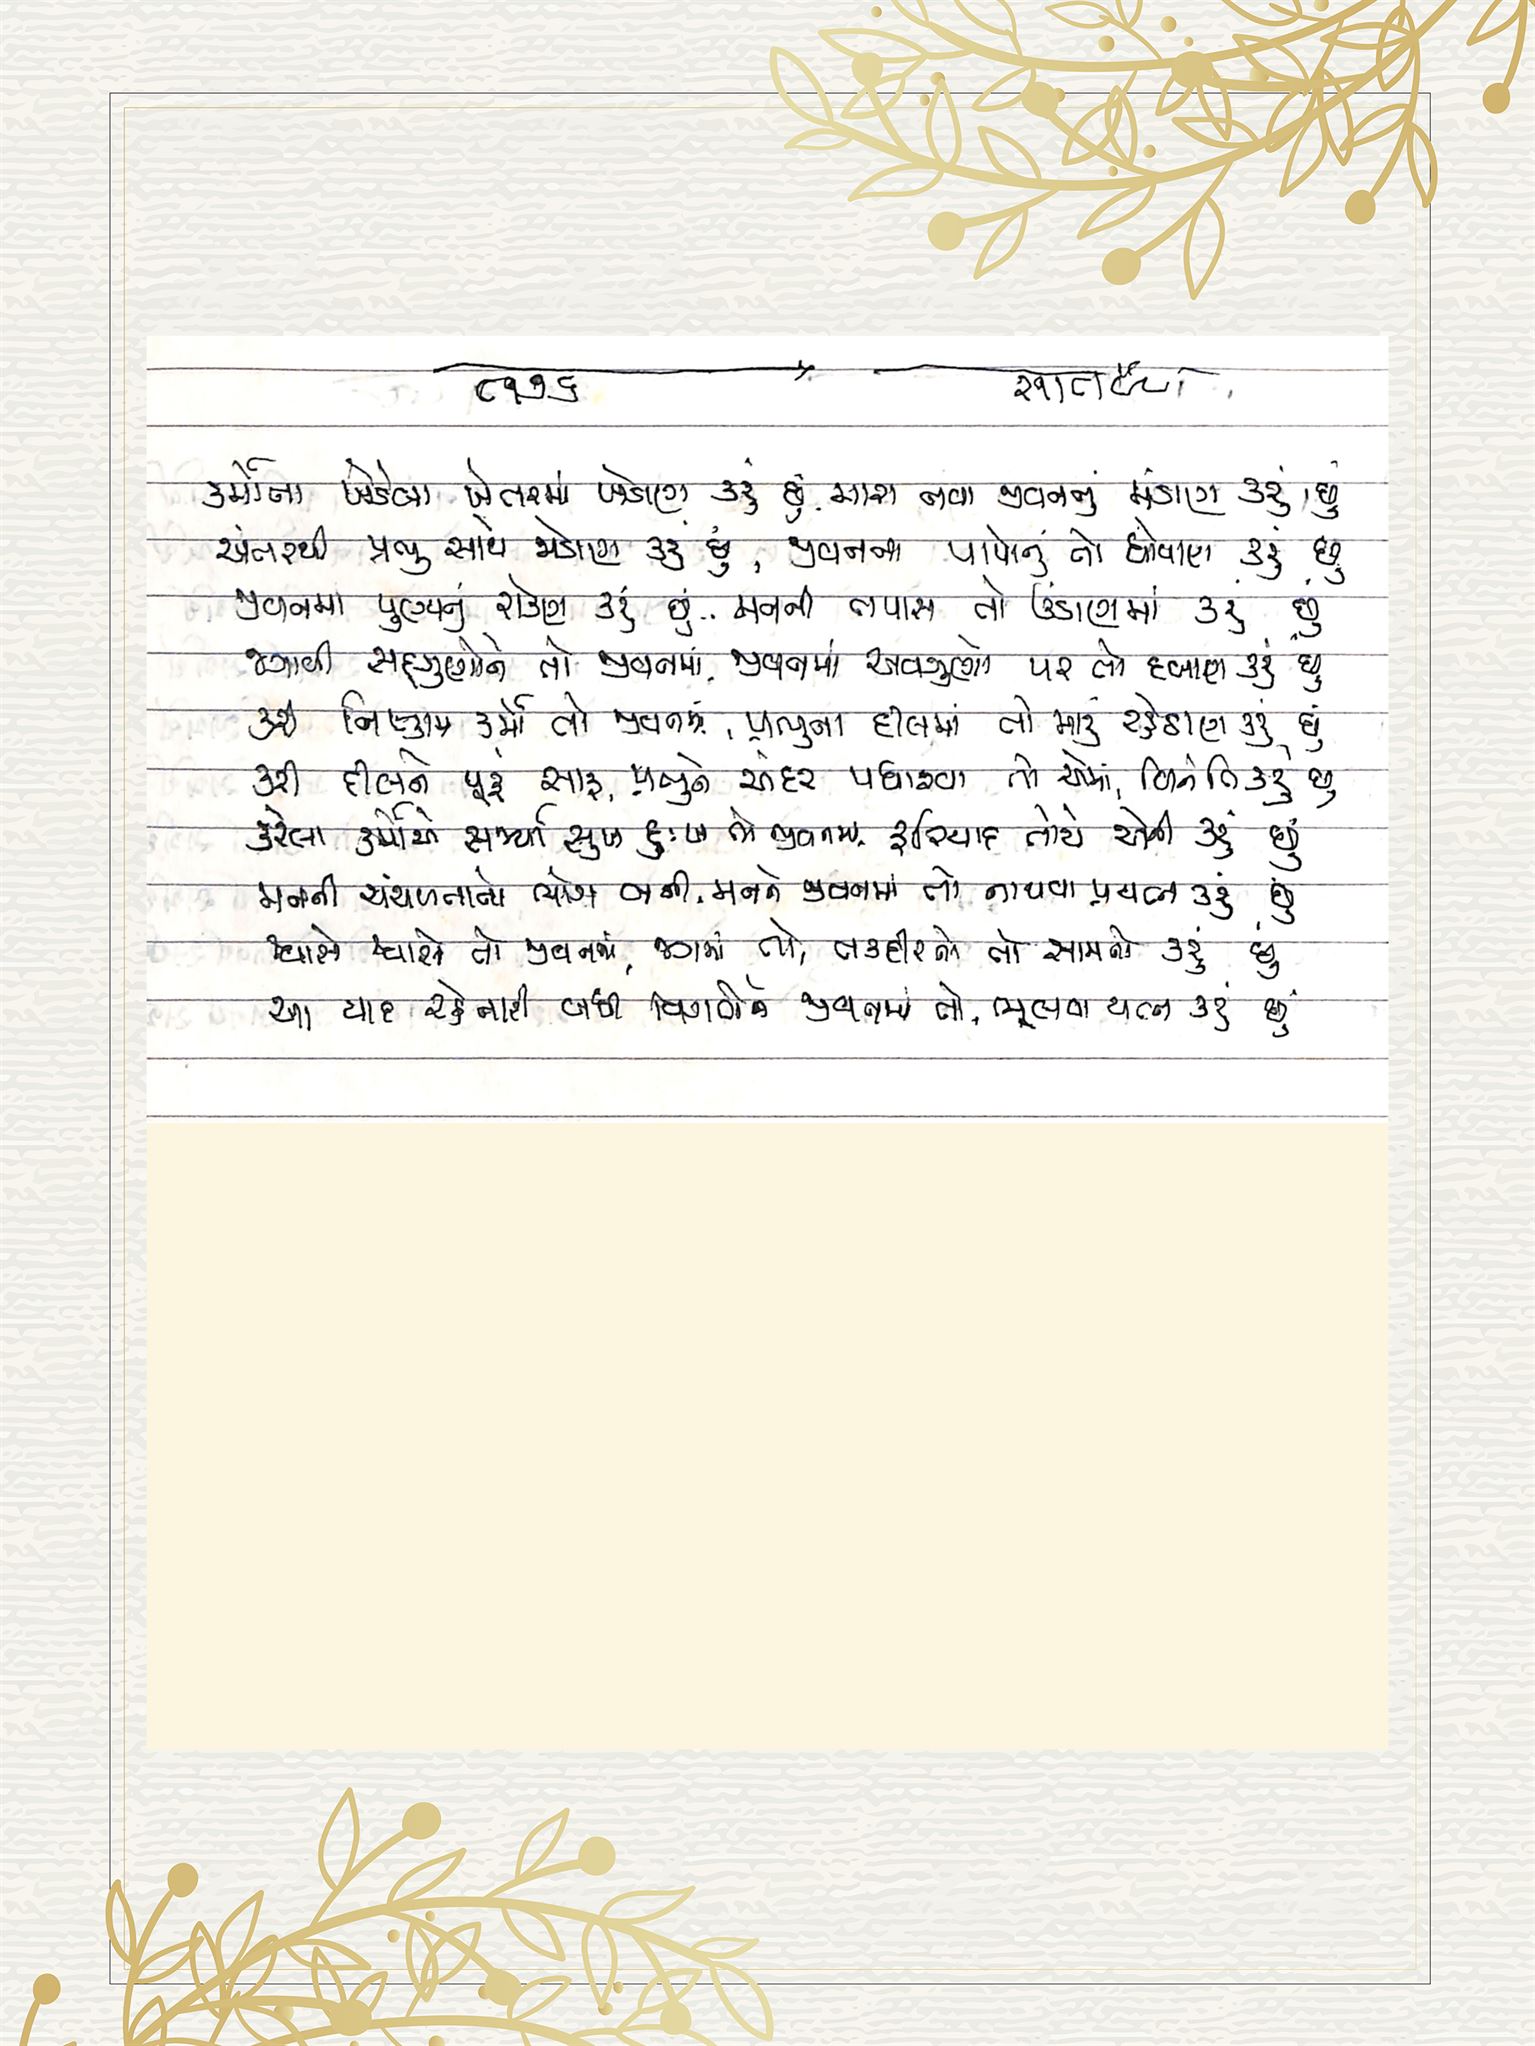 ૮૧૭૬
કર્મોના ખેડેલા ખેતરમાં ખેડાણ કરું છું, મારા નવા જીવનનું મંડાણ કરું છું
અંતરથી પ્રભુ સાથે જોડાણ કરું છું, જીવનના પાપોનું તો ધોવાણ કરું છું
જીવનમાં પુણ્યનું રોકાણ કરું છું.. મનની તપાસ તો ઉંડાણમાં કરું છું
જગાવી સદ્ગુણોને તો જીવનમાં, જીવનમાં અવગુણો પર તો દબાણ કરું છું
કરી નિષ્કામ કર્મો તો જીવનમાં, પ્રભુના દીલમાં તો મારું રહેઠાણ કરું છું
કરી દીલને પૂરું સાફ, પ્રભુને અંદર પધારવા તો એમાં, વિનંતિ કરું છું
કરેલા કર્મોએ સર્જ્યા સુખ દુઃખ તો જીવનમાં, ફરિયાદ તોયે એની કરું છું
મનની ચંચળતાનો ભોગ બની, મનને જીવનમાં તો નાથવા પ્રયત્ન કરું છું
શ્વાસે શ્વાસે તો જીવનમાં, જગમાં તો, તકદીરનો તો સામનો કરું છું
આ યાદ રહેનારી બધી વિગતોને જીવનમાં તો, ભૂલવા યત્ન કરું છું